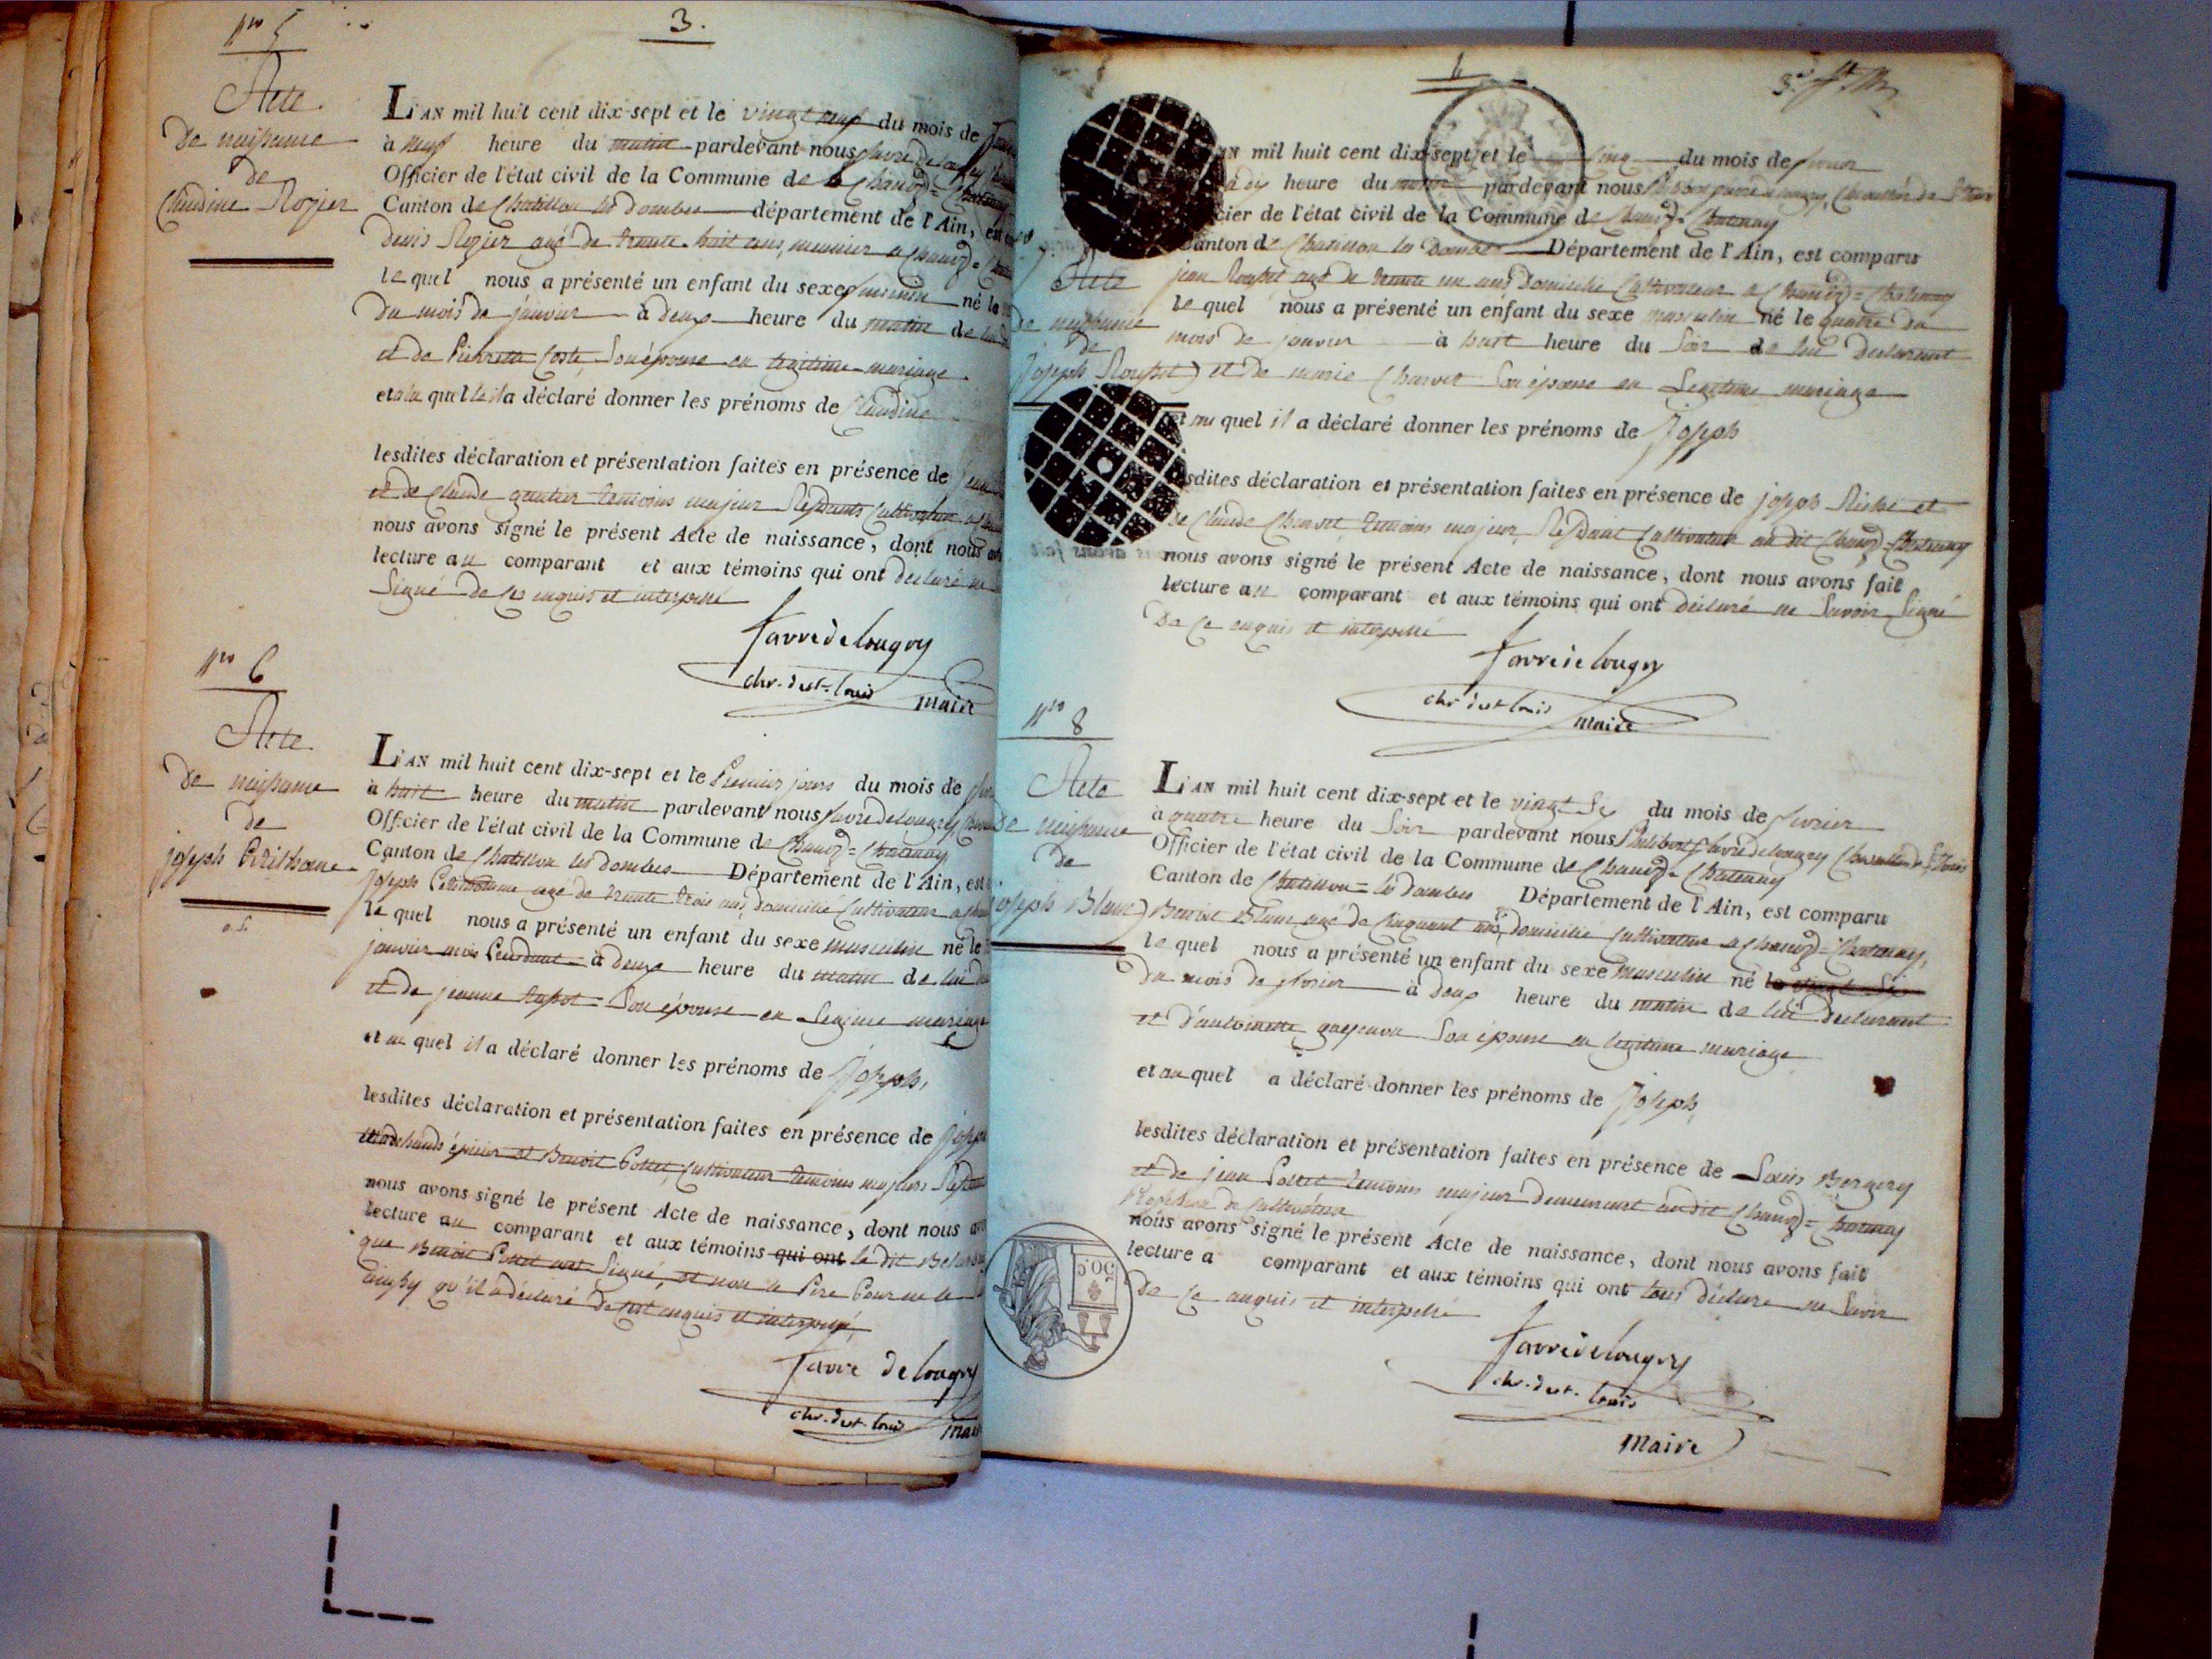 3.
Nro 5
Acte
de naissance
de
Claudine Rozier
L'AN mil huit cent dix-sept et le vingt neuf du mois de
à neuf heure du matin pardevant nous favre de longry
Officier de l'état civil de la Commune de Chanoz = Chatenay
Canton de Chatillon les dombes département de l'Ain, est
denis Rozier agé de trente huit ans, meunier a Chanoz =
le quel nous a présenté un enfant du sexe feminin né le
du mois de janvier à deux heure du matin de lui
et de Pierrette Coste, Son épouse en legitime mariage
et a la quelle il a déclaré donner les prénoms de Claudine
lesdites déclaration et présentation faites en présence de
et de Claude gautier temoins majeur Residants Cultivateur
nous avons signé le présent Acte de naissance, dont nous
lecture au comparant et aux témoins qui ont declaré ne
Signé de ce enquis et interpellé
favre de longry
chr. de st. louis maire
Nro 6
Acte
de naissance
de
joseph Petithome
L'AN mil huit cent dix-sept et le Premier jours du mois de
à huit heure du matin pardevant nous favre de longry
Officier de l'état civil de la Commune de Chanoz = Chatenay
Canton de Chatillon les dombes Département de l'Ain, est
joseph agé de trente trois ans, domicilié Cultivateur a
le quel nous a présenté un enfant du sexe masculin né le
janvier mois à deux heure du matin de lui
et de jeanne Son épouse en mariage
et au quel il a déclaré donner les prénoms de Joseph,
lesdites déclaration et présentation faites en présence de
Marchands épicier et Benoit Pottet, Cultivateur temoins majeurs
nous avons signé le présent Acte de naissance, dont nous
lecture au comparant et aux témoins qui ont le dit
que Benoit Pottet ont Signé, et non le Pere Pour ne le
qu'il a déclaré de enquis et interpellé,
favre de longry
chr. de st. louis maire
3e
L'AN mil huit cent dix-sept et le Cinq du mois de fevrier
à dix heure du matin pardevant nous Philibert favre de longry, Chevallier de St Louis
Officier de l'état civil de la Commune de Chanoz = Chatenay
Canton de Chatillon les Dombes Département de l'Ain, est comparu
jean Rousset agé de trente un ans Domicilié Cultivateur a Chanoz = Chatenay
le quel nous a présenté un enfant du sexe masculin né le quatre du
mois de janvier à huit heure du Soir de lui declarant
et de marie Charvet Son épouse en Legitime mariage
et au quel il a déclaré donner les prénoms de Joseph
Acte
de naissance
de
Joseph Rousset
lesdites déclaration et présentation faites en présence de joseph et
de Claude Charvet, temoins majeur, Residant Cultivateur au dit Chanoz = Chatenay
nous avons signé le présent Acte de naissance, dont nous avons fait
lecture au comparant et aux témoins qui ont déclaré ne Savoir Signé
De ce enquis et interpellé
favre de longry
chr de st louis maire
Nro 8
Acte
de naissance
de
joseph Blanc
L'AN mil huit cent dix-sept et le vingt Six du mois de fevrier
à quatre heure du Soir pardevant nous Philibert favre de longry Chevallier de St Louis
Officier de l'état civil de la Commune de Chanoz = Chatenay
Canton de Chatillon = les dombes Département de l'Ain, est comparu
Benoit Blanc agé de Cinquant ans, domicilié Cultivateur a Chanoz = Chatenay,
le quel nous a présenté un enfant du sexe masculin né le vingt Six
du mois de fevrier à deux heure du matin de lui declarant
et d'antoinette Son épouse en legitime mariage
et au quel a déclaré donner les prénoms de Joseph,
lesdites déclaration et présentation faites en présence de Louis Bergery
et de jean Pottet temoins majeur demeurant au dit Chanoz = Chatenay
Profession de Cultivateur
nous avons signé le présent Acte de naissance, dont nous avons fait
lecture a comparant et aux témoins qui ont tous déclare ne Savoir
De ce enquis et interpellé
50.C
favre de longry
chr. de st. louis
maire